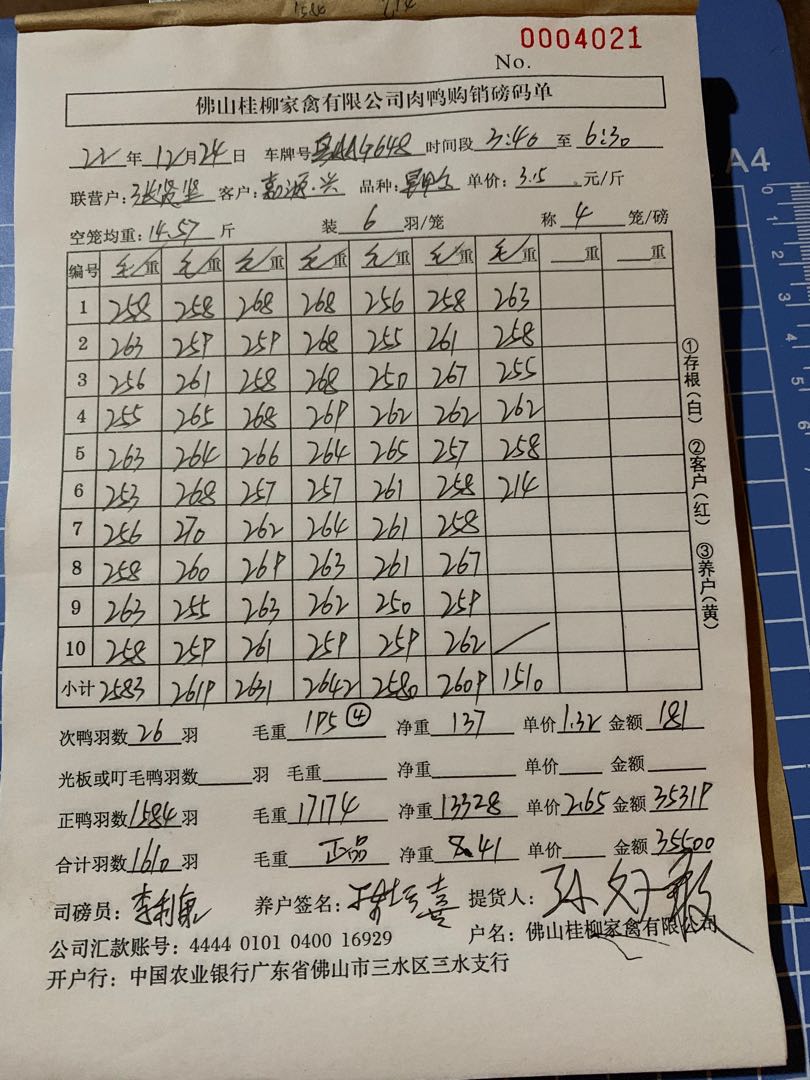 0004021
No.
佛山桂柳家禽有限公司肉鸭购销磅码单
22年12月24日 车牌号粤AAG648 时间段3:40至6:30
联营户: 客户: 品种: 单价:3.15元/斤
空笼均重:14.57斤 装6羽/笼 称4笼/磅
编号 毛/重 毛/重 毛/重 毛/重 毛/重 毛/重 毛/重 重 重
1 258 258 268 268 256 258 263
2 263 259 259 268 255 261 258
3 256 261 258 268 250 267 255
4 255 265 268 269 262 262 262
5 263 264 266 264 265 257 258
6 253 268 257 257 261 258 214
7 256 270 262 264 261 258
8 258 260 269 263 261 267
9 263 255 263 262 250 259
10 258 259 261 259 259 262 /
小计 2583 2619 2631 2642 2580 2609 1510
次鸭羽数26羽 毛重195④ 净重137 单价1.32 金额181
光板或叮毛鸭羽数 羽 毛重 净重 单价 金额
正鸭羽数1584羽 毛重17174 净重13328 单价2.65 金额35319
合计羽数1610羽 毛重正品 净重8.41 单价 金额35500
司磅员:李利 养户签名: 提货人:
公司汇款账号:4444 0101 0400 16929 户名:佛山桂柳家禽有限公司
开户行:中国农业银行广东省佛山市三水区三水支行
①存根(白) ②客户(红) ③养户(黄)
A4
0
1
2
3
4
5
6